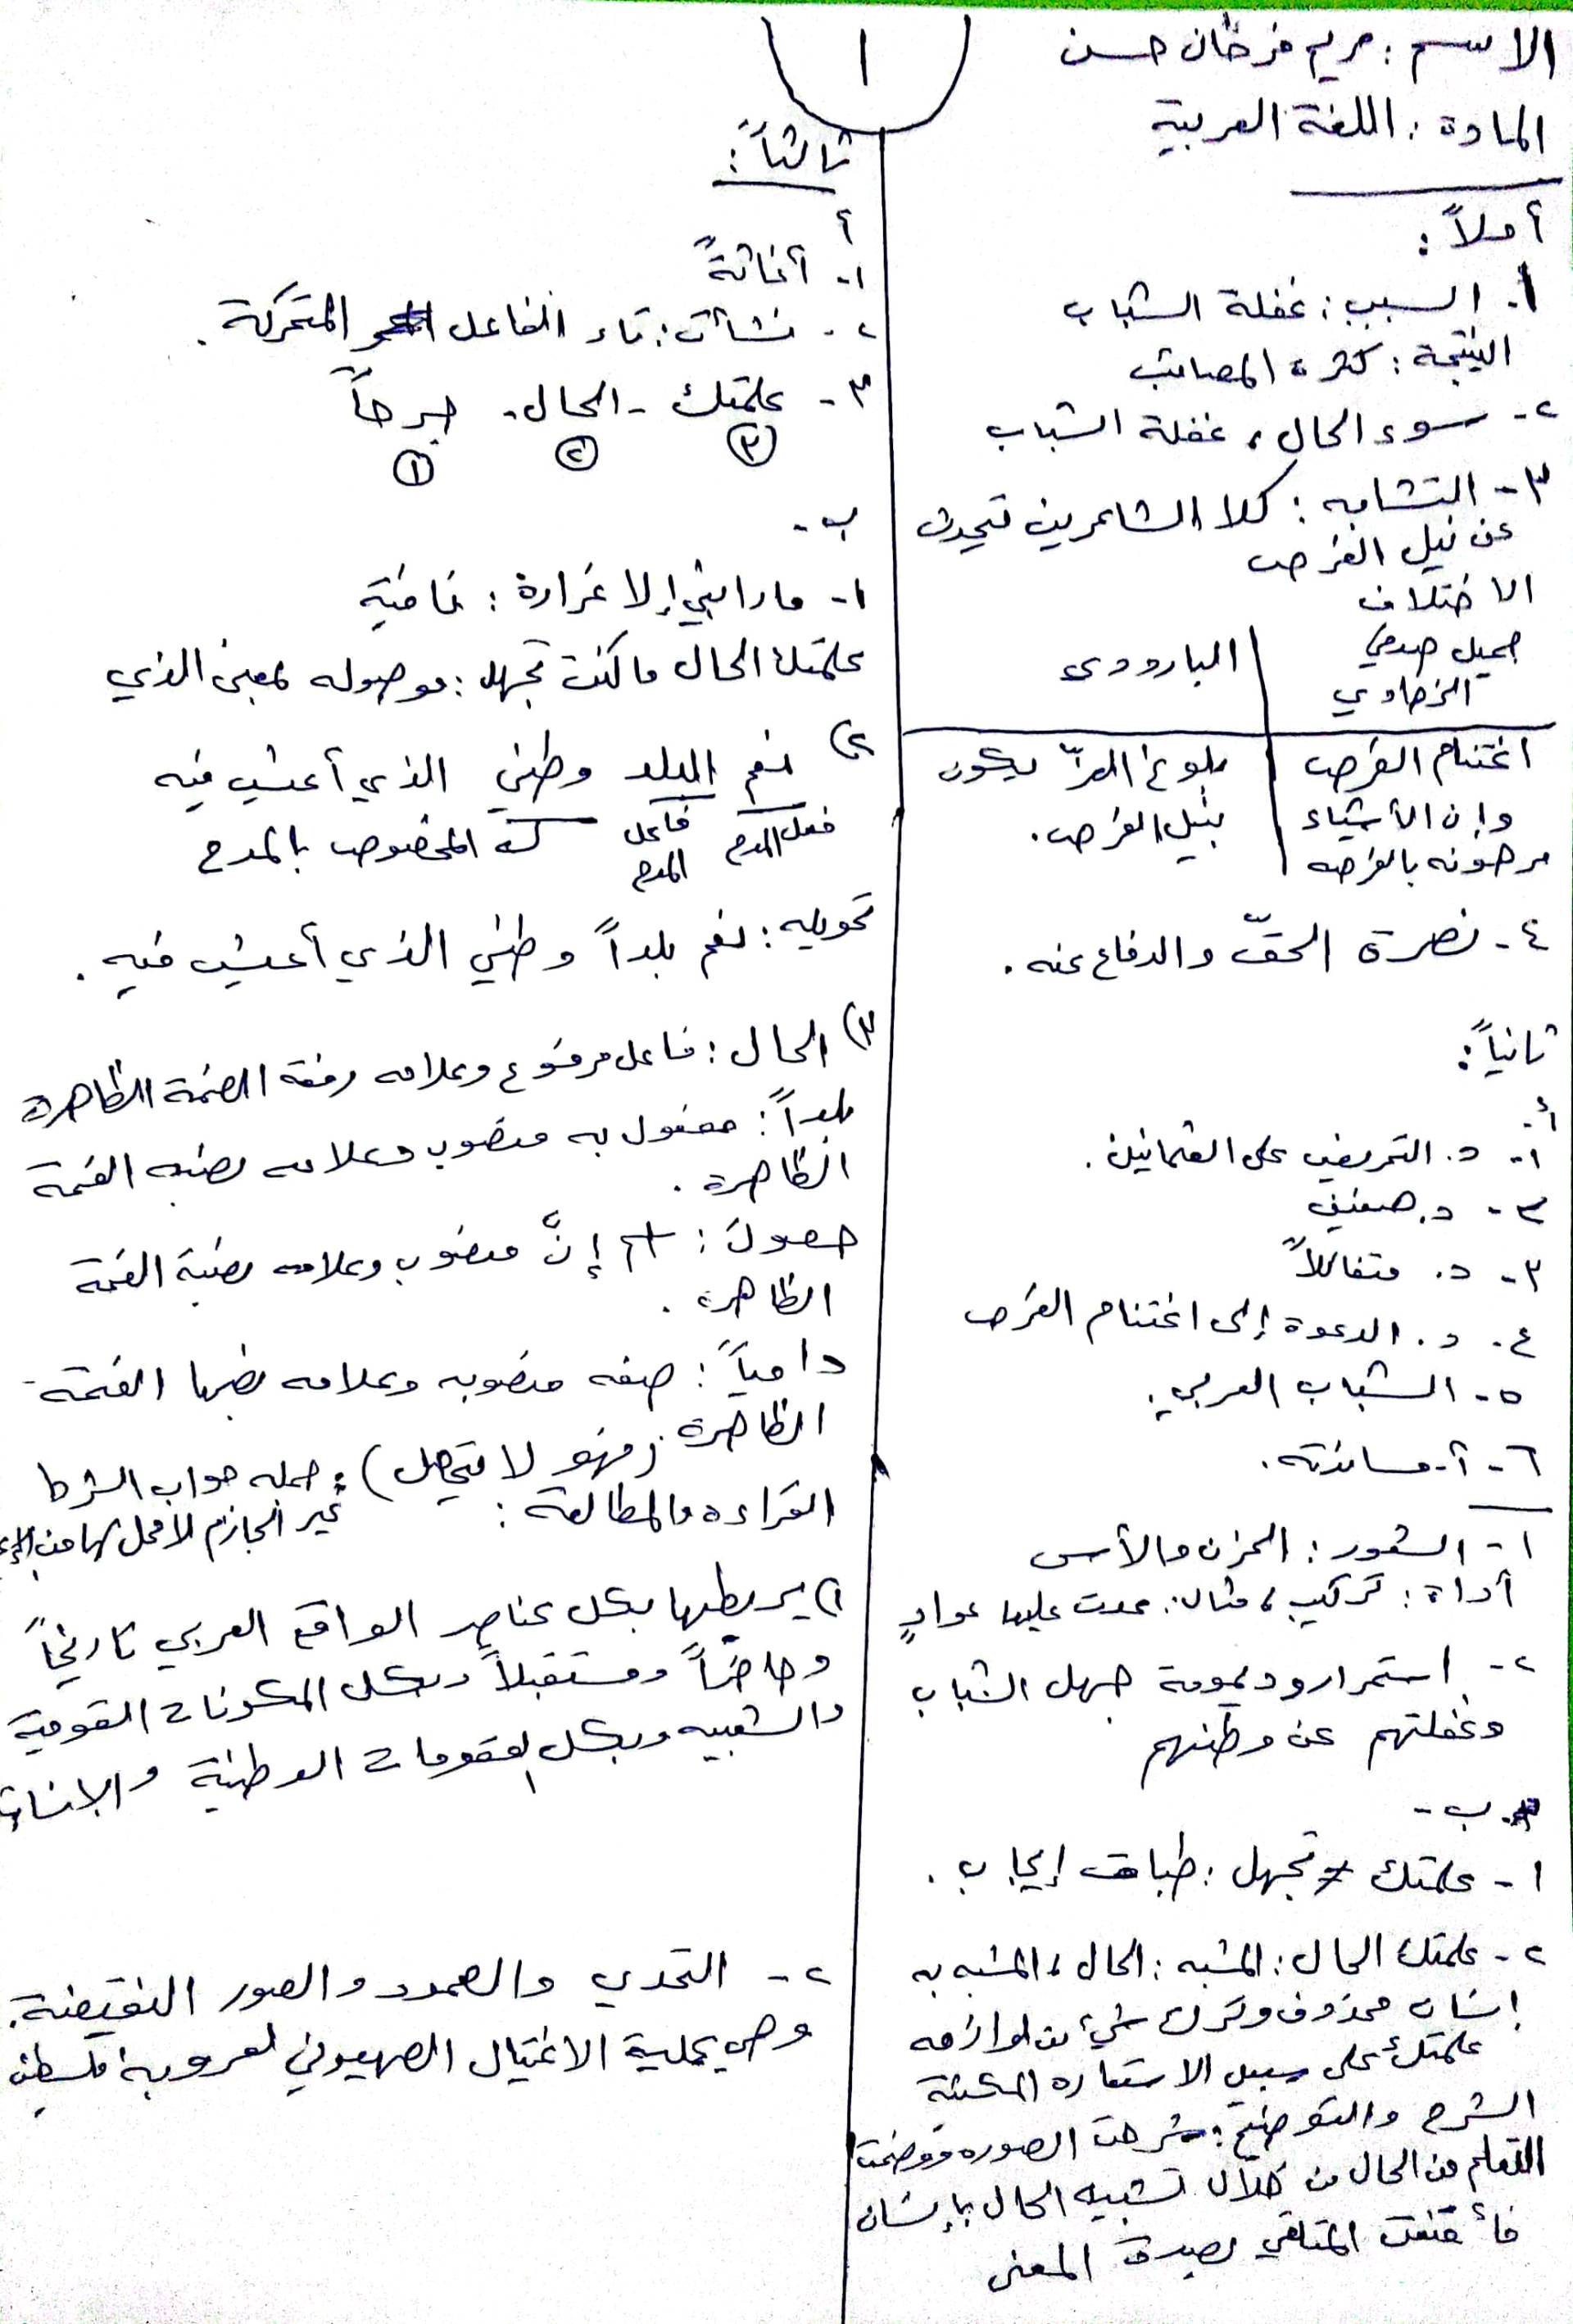 الاسم : مريم فرحان حسن
المادة : اللغة العربية
١
أولاً :
١. السبب : غفلة الشباب
النتيجة : كثرة المصائب
٢- سوء الحال ، غفلة الشباب
٣- التشابه : كلا الشاعرين تحدث
عن نيل الفرص
الاختلاف
جميل صدقي الزهاوي | البارودي
اغتنام الفرص | بلوغ العزّ يكون
وإن الأشياء | بنيل الفرص .
مرهونه بالفرصه
٤- نصرة الحقّ والدفاع عنه .
ثانياً :
أ-
١- د. التحريض على العثمانين .
٢- د.
٣- د. متفائلاً
٤- د. الدعوة إلى اغتنام الفرص
٥- الشباب العربي .
٦- أ- مساندته .
١- الشعور : الحزن والأسى
أداة : تركيب ، مثال : عدت عليها عوادٍ
٢- استمرار وديمومة جهل الشباب
وغفلتهم عن وطنهم
ب -
١- علمتك ≠ تجهل : طباق إيجاب .
٢- علمتك الحال : المشبه : الحال ، المشبه به
إنسان محذوف وترك شيء من لوازمه
علمتك على سبيل الاستعاره المكنية
الشرح والتوضيح : شرحت الصوره ووضحت
التعلم من الحال من خلال تشبيه الحال بإنسان
فأقنعت المتلقي بصدق المعنى
ثالثاً :
أ
١- آنائةً
٢- نشأت : تاء الفاعل المتحركة .
٣- علمتك - الحال - جرحاً
٣ ٢ ١
ب -
١- ما رابني إلا غرارة : نافية
علمتك الحال ما كنت تجهل : موصوله بمعنى الذي
٢) نعم البلد وطني الذي أعيش فيه
فعل المدح فاعل المدح المخصوص بالمدح
تحويله : نعم بلداً وطني الذي أعيش فيه .
٣) الحال : فاعل مرفوع وعلامه رفعه الضمة الظاهرة
بلداً : مفعول به منصوب وعلامه نصبه الفتحة
الظاهرة .
حصولَ : اسم إنَّ منصوب وعلامه نصبه الفتحة
الظاهرة .
دامياً : صفه منصوبه وعلامه نصبها الفتحة
الظاهرة . (فهو لا يتجهل) : جمله جواب الشرط
غير الجازم لا محل لها من الإع
القراءه والمطالعة :
١) يربطها بكل عناصر الواقع العربي تاريخاً
وحاضراً ومستقبلاً وبكل المكونات القومية
والشعبيه وبكل المقومات الوطنية والإنسانية
٢- التحدي والصمود والصور النقيضة .
وهي عملية الاغتيال الصهيوني لعروبة فلسطين